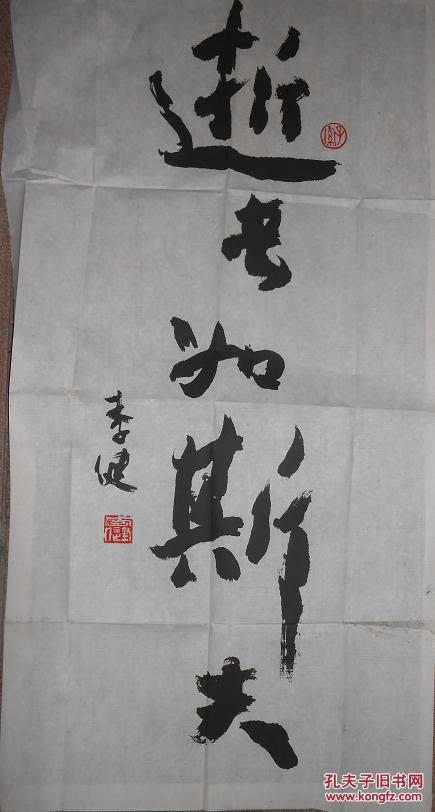 逝者如斯夫
李健
孔夫子旧书网
www.kongfz.com